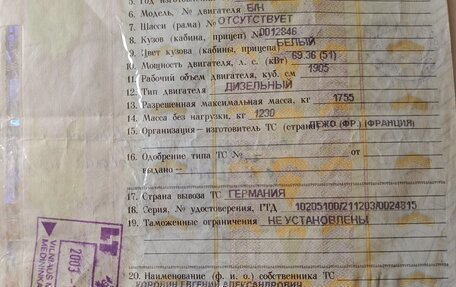 5. Год изготовления
6. Модель, № двигателя Б/Н
7. Шасси (рама) № ОТСУТСТВУЕТ
8. Кузов (кабина, прицеп) № 0012846
9. Цвет кузова (кабины, прицепа) БЕЛЫЙ
10. Мощность двигателя, л. с. (кВт) 69.36 (51)
11. Рабочий объем двигателя, куб. см 1905
12. Тип двигателя ДИЗЕЛЬНЫЙ
13. Разрешенная максимальная масса, кг 1755
14. Масса без нагрузки, кг 1230
15. Организация-изготовитель ТС (страна) ПЕЖО (ФР.) (ФРАНЦИЯ)
16. Одобрение типа ТС № от
выдано
17. Страна вывоза ТС ГЕРМАНИЯ
18. Серия, № удостоверения, ГТД 10205100/211203/0024815
19. Таможенные ограничения НЕ УСТАНОВЛЕНЫ
20. Наименование (ф. и. о.) собственника ТС
КОРОВИН ЕВГЕНИЙ АЛЕКСАНДРОВИЧ
2003